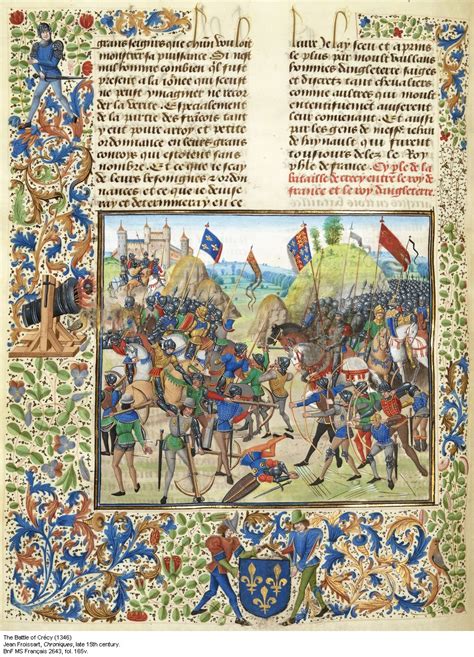 grans seigneurs que chun vouloit
monstrer sa puissance. Et nest
nul homme combien quil fust
present a la iournee qui sceust
ne peust ymaginer ne recor
der la verite. Especialement
de la partie des francois tant
y eut poure arroy et petite
ordonnance en leurs grans
conrois qui estoient sans
nombre. Et ce que ie scay
de leurs besongnes
nances et ce que ie deuise
ray et determineray en ce
liure ie lay sceu et apris
le plus par moult vaillans
hommes dangleterre saiges
et discretz tant cheualiers
comme autres qui moult
ententifuement auiserent
leur conuenant. Et aussi
par les gens de messe. iehan
de haynault qui furent
tousiours delez le Roy
phle de france. Cy ple de la
bataille de crecy entre le roy de
france et le roy dangleterre.
The Battle of Crécy (1346)
Jean Froissart, Chroniques, late 15th century.
BnF MS Français 2643, fol. 165v.